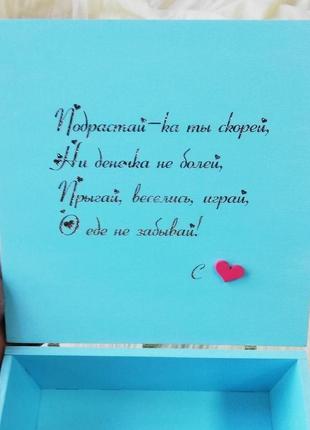 Подрастай-ка ты скорей,
Ни денёчка не болей,
Прыгай, веселись, играй,
О еде не забывай!
С